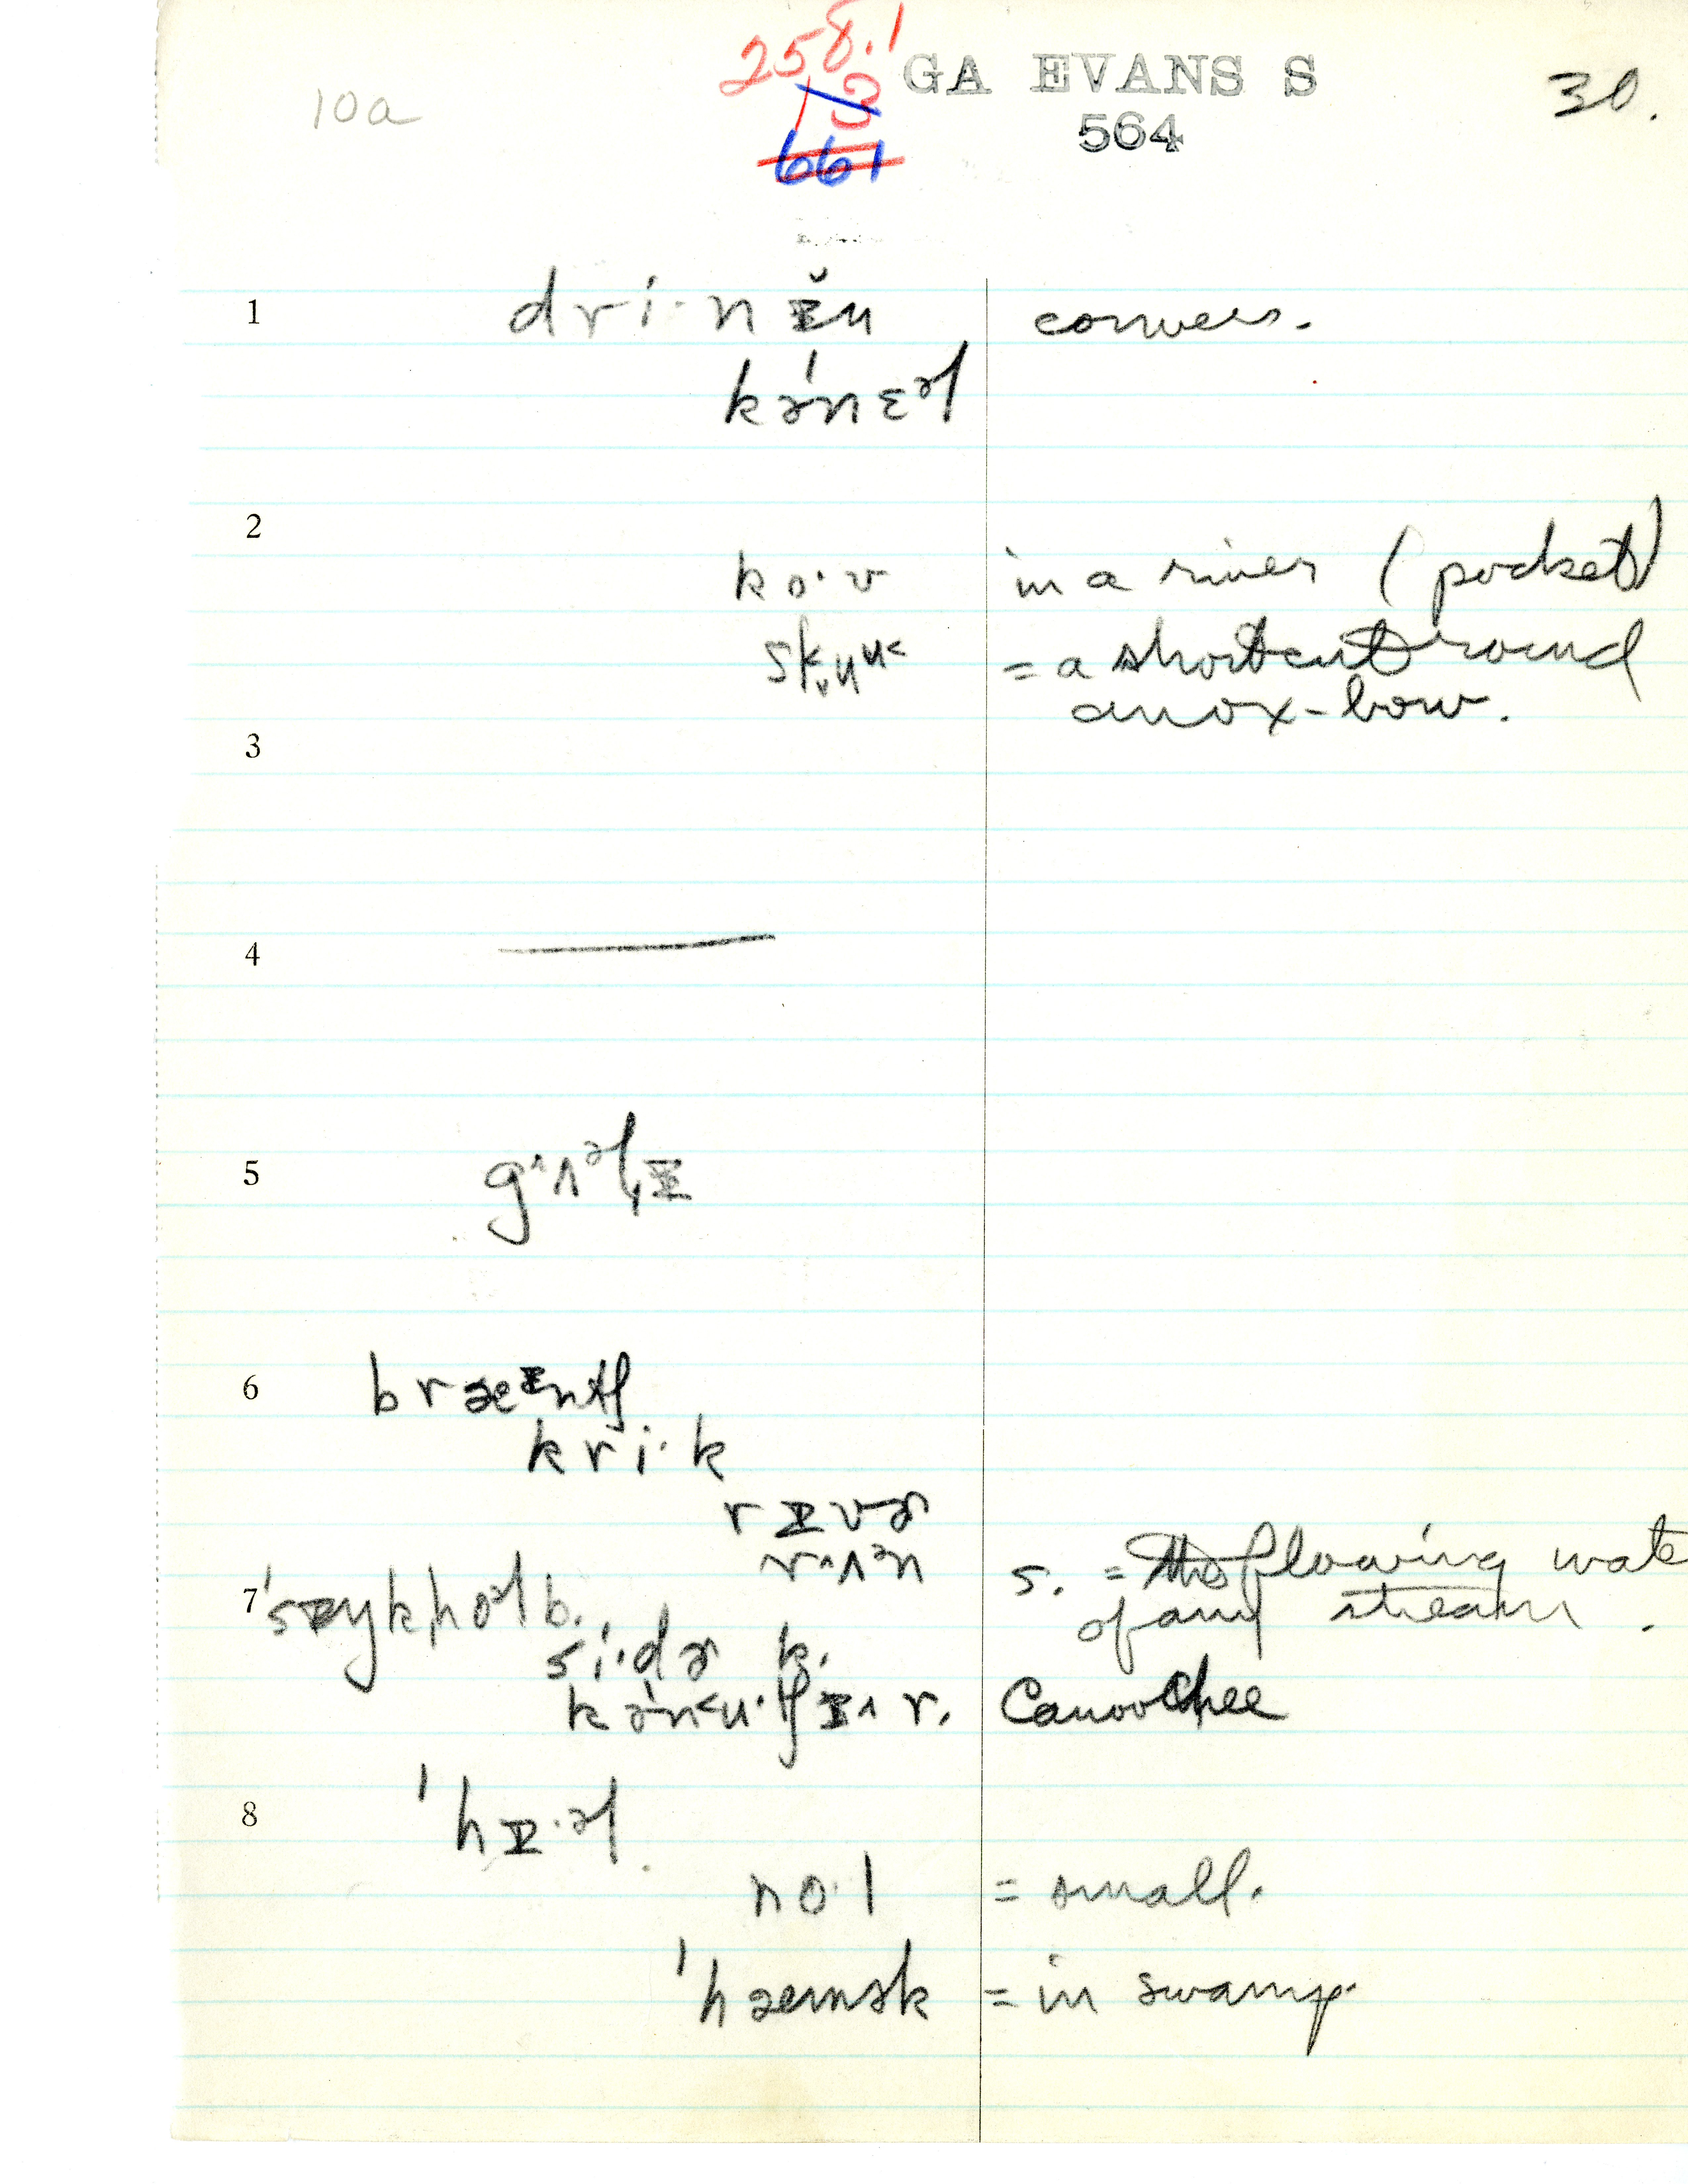 10a
258.1
3
661
GA EVANS S
564
30.
1 dri·n ɪ̆u convers.
kə́nɛəl
2
ko·v in a river (pocket)
= a shortcut round
an ox-bow.
3
4
5 gʌəlɪ
6 bræɪntʃ
kri·k
rɪvɚ
rʌən s. = the flowing wate
7 b. of any stream.
si·dɚ k.
r. Canoochee
8 ˈhɪ·əl
no·l = small.
ˈhæmək = in swamp.